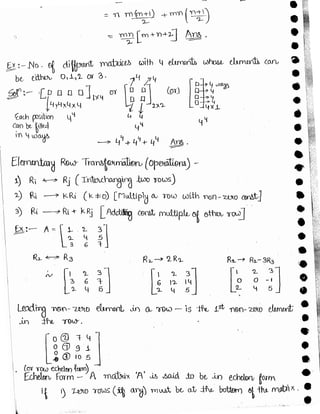 = n m(m+1)/2 + mn (n+1)/2
= mn/2 [m+n+2] Ans.
Ex:- No. of different matrices with 4 elements whose elements can
be either 0,1,2 or 3.
Sol:- [□ □ □ □]1x4 or [□ □ □ □]2x2 (or) [□ □ □ □]4x1 → 4 ways
4x4x4x4
Each position can be filled in 4 ways
4⁴ 4⁴ 4⁴
→ 4⁴+4⁴+4⁴ Ans.
Elementary Row Transformation (operations) -
1) Ri ↔ Rj (Interchanging two rows)
2) Ri → KRi (K≠0) [Multiply a row with non-zero const]
3) Ri → Ri + KRj [Adding const multiple of other row]
Ex:- A = [1 2 3
2 4 5
3 6 7]
R2 ↔ R3 R2 → 2R2 R2 → R2-3R3
~ [1 2 3 [1 2 3 [1 2 3
3 6 7 6 12 14 0 0 -1
2 4 5] 2 4 5] 2 4 5]
Leading non-zero element in a row - is the 1st non-zero element
in the row.
[0 2 7 4
0 7 9 1
0 3 10 5]
(or row echelon form)
Echelon Form - A matrix 'A' is said to be in echelon form
if 1) zero rows (if any) must be at the bottom of the matrix.